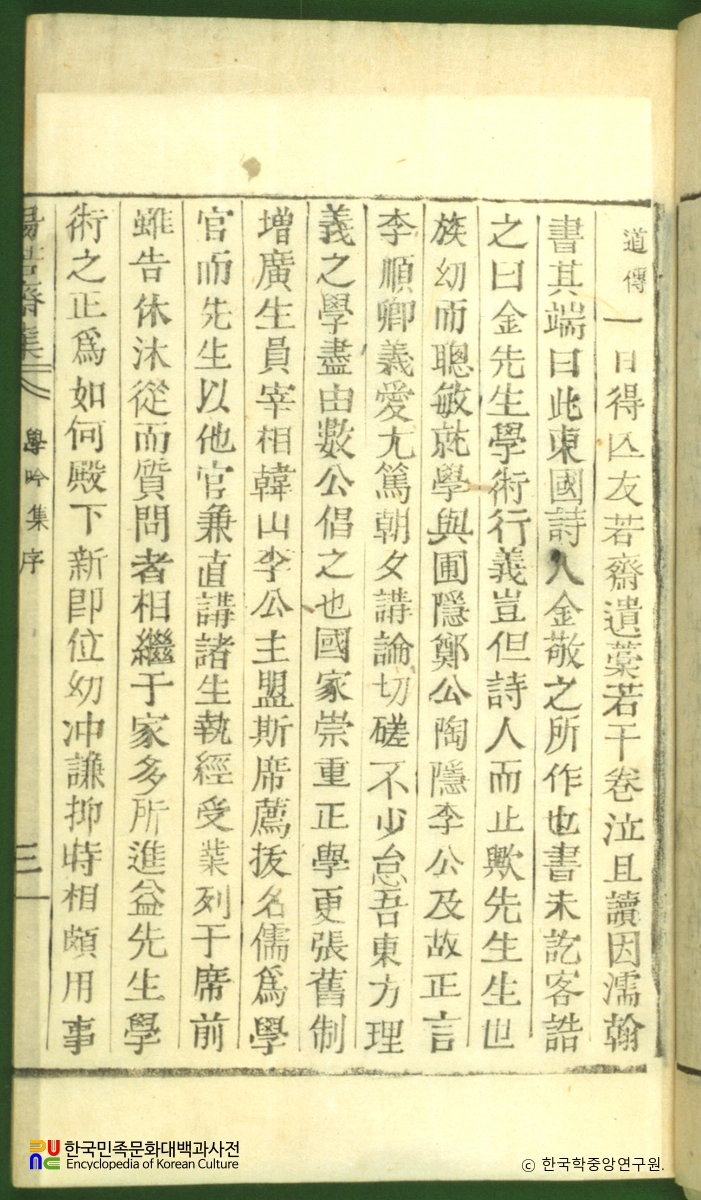 道傳一日得亡友若齋遺藁若干卷泣且讀因濡翰
書其端曰此東國詩人金敬之所作也書未訖客詰
之曰金先生學術行義豈但詩人而止歟先生生世
族幼而聰敏就學與圃隱鄭公陶隱李公及故正言
李順卿義愛尤篤朝夕講論切磋不少怠吾東方理
義之學盡由數公倡之也國家崇重正學更張舊制
增廣生員宰相韓山李公主盟斯席薦拔名儒爲學
官而先生以他官兼直講諸生執經受業列于席前
雖告休沐從而質問者相繼于家多所進益先生學
術之正爲如何殿下新卽位幼冲謙抑時相頗用事
惕若齋集 學吟集序 三
한국민족문화대백과사전
Encyclopedia of Korean Culture
ⓒ 한국학중앙연구원.